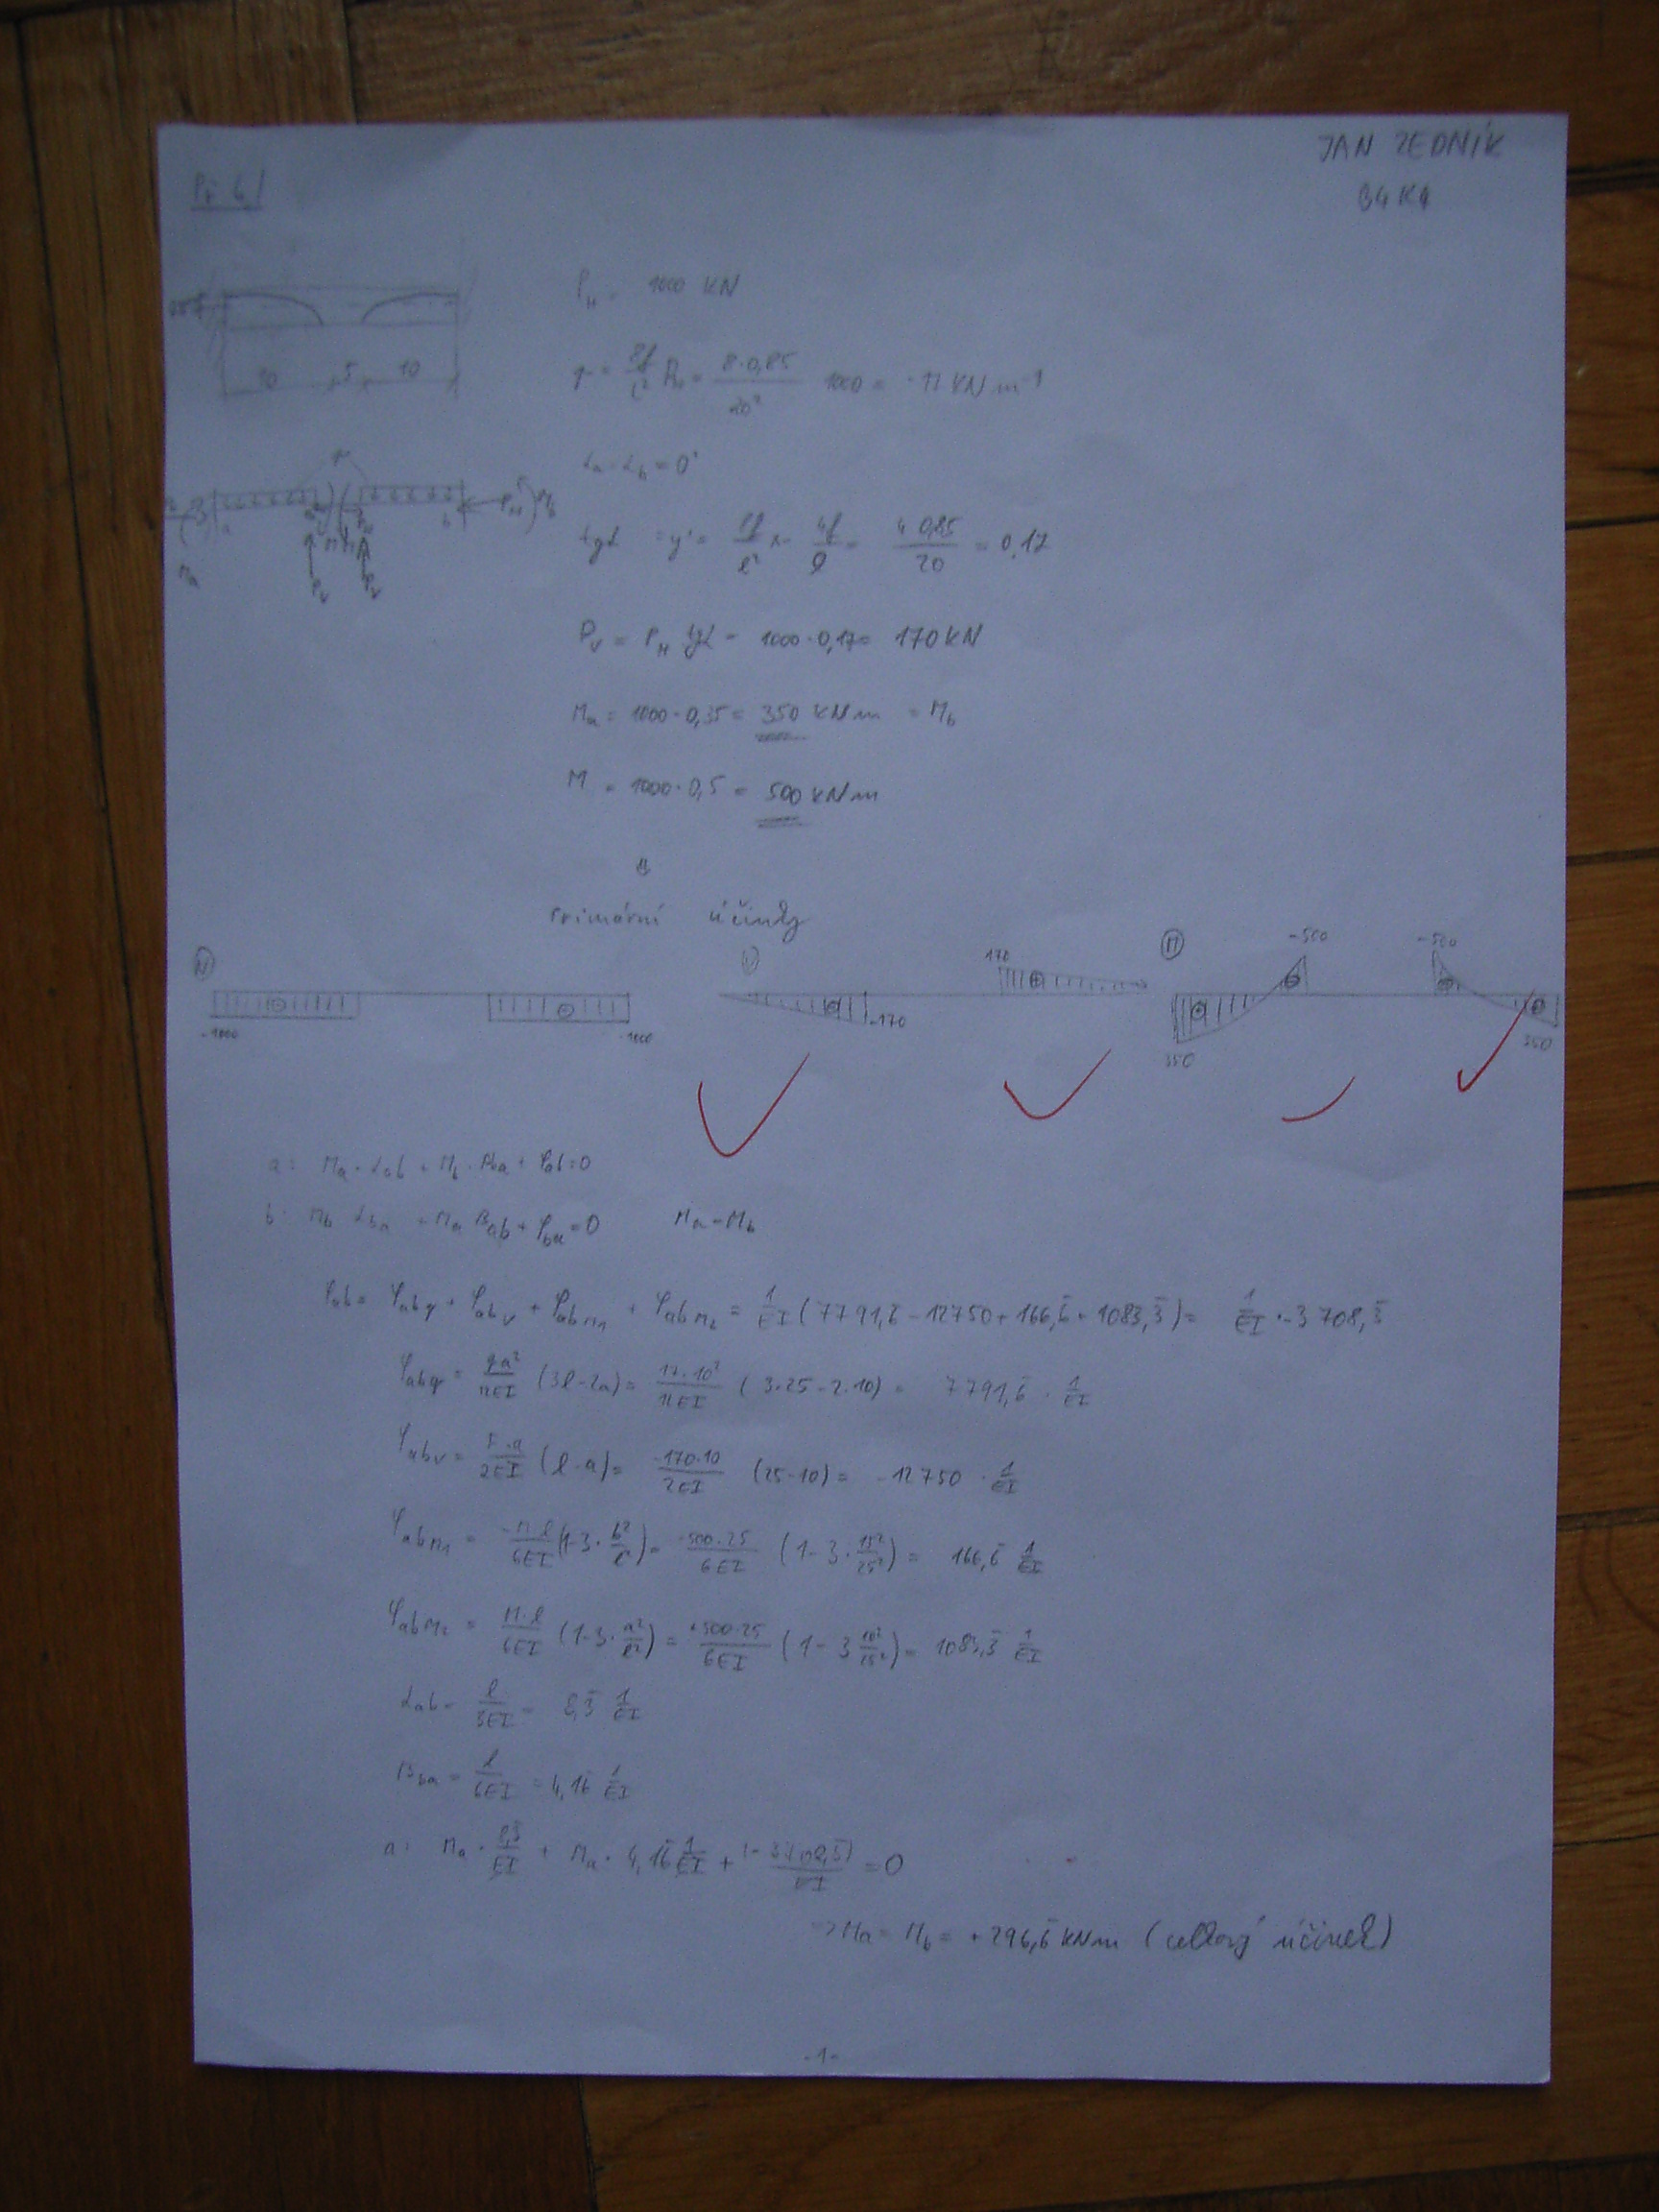 JAN ZEDNÍK
B4K1
Př 6)
P_H = 1000 KN
10 5 10
p = 8f/l² P_H = 8·0,85/20² 1000 = 17 KN m⁻¹
α_a = α_b = 0°
a b
tgα = y' = 8f/l² x - 4f/l = 4·0,85/20 = 0,17
P_V = P_H tgα = 1000·0,17 = 170 KN
M_a = 1000·0,35 = 350 KNm = M_b
M = 1000·0,5 = 500 KNm
⇓
primární účinky
N V M
170 -500 -500
-1000 -1000 -170 350 350
a: M_a·α_ab + M_b·β_ba + φ_ab = 0
b: M_b α_ba + M_a β_ab + φ_ba = 0 M_a = M_b
φ_ab = φ_abq + φ_abv + φ_abM1 + φ_abM2 = 1/EI (7791,6̄ - 12750 + 166,6̄ + 1083,3̄) = 1/EI · -3708,3̄
φ_abq = qa²/12EI (3l-2a) = 17·10²/12EI (3·25-2·10) = 7791,6̄ · 1/EI
φ_abv = F·a/2EI (l-a) = -170·10/2EI (25-10) = -12750 · 1/EI
φ_abM1 = -M·l/6EI (1-3·b²/l²) = -500·25/6EI (1-3·15²/25²) = 166,6̄ 1/EI
φ_abM2 = M·l/6EI (1-3·a²/l²) = +500·25/6EI (1-3 10²/25²) = 1083,3̄ 1/EI
α_ab = l/3EI = 8,3̄ 1/EI
β_ba = l/6EI = 4,16̄ 1/EI
a: M_a · 8,3̄/EI + M_a · 4,16̄ 1/EI + (-3708,3̄)/EI = 0
=> M_a = M_b = +296,6̄ kNm (celkový účinek)
-1-